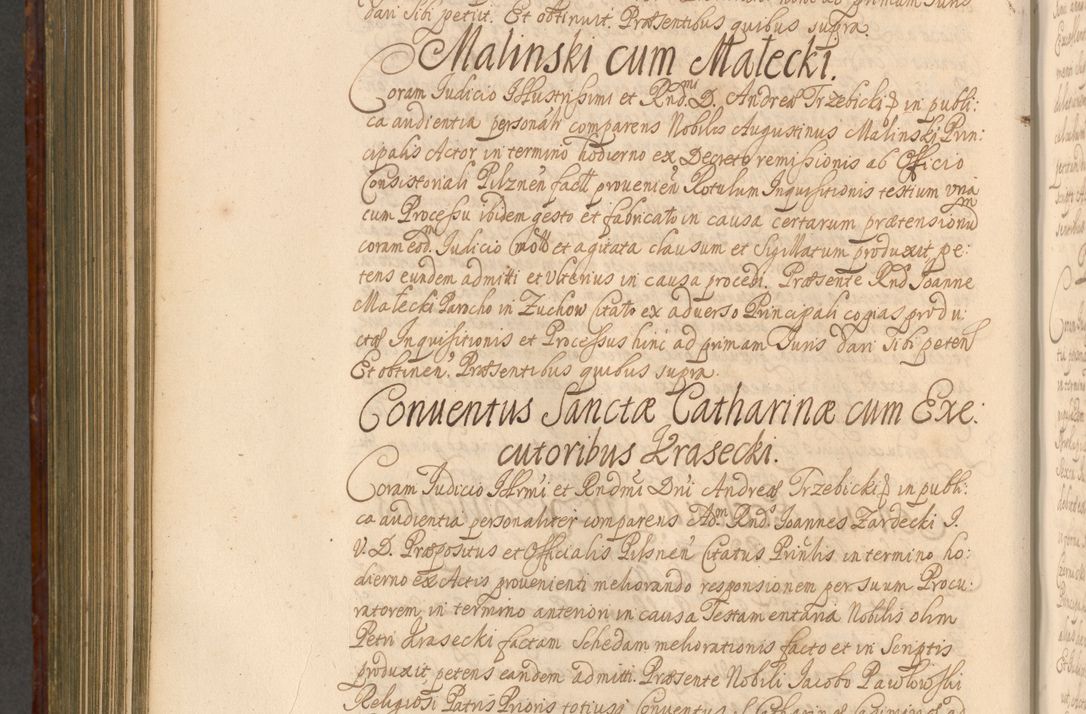 dari sibi petiit. Et obtinuit. Præsentibus quibus supra
Malinski cum Małecki.
Coram Iudicio Illustrissimi et Rnd.mi D. Andreæ Trzebicki in publi:
ca audientia personalr comparens Nobilis Augustinus Malinski Prin:
cipalis Actor in termino hodierno ex Decreto remissionis ab Officio
Consistoriali Pilznen facti provenien Rotulum Inquisitionis testium vna
cum Processu ibidem gesto et fabricato in causa certarum prætensionu
coram eod.m Iudicio mota et agitata clausum et Sigillatum produxit pe:
tens eundem admitti et Vlterius in causa procedi. Præsente Rnd Ioanne
Małecki Parocho in Zuchow citato ex adverso Principali copias produ:
ctæ Inquisitionis et Processus hinc ad primam Iuris dari sibi peten
Et obtinen. Præsentibus quibus supra.
Conuentus Sanctæ Catharinæ cum Exe:
cutoribus Krasecki.
Coram Iudicio Illrmi et Rndmi Dni Andreæ Trzebicki in publi:
ca audientia personaliter comparens Adm Rnd.s Ioannes Zardecki I.
V. D. Præpositus et Officialis Pilsnen Citatus Prinlis in termino ho:
dierno ex Actis provenienti meliorando responsionem per suum Procu:
ratorem in termino anteriori in causa Testamentaria Nobilis olim
Petri Krasecki factam Schedam meliorationis facto et in Scriptis
produxit petens eandem admitti. Præsente Nobili Iacobo Pawłowski
Religiosi Patris Prioris totius Conventus S. Catharinæ